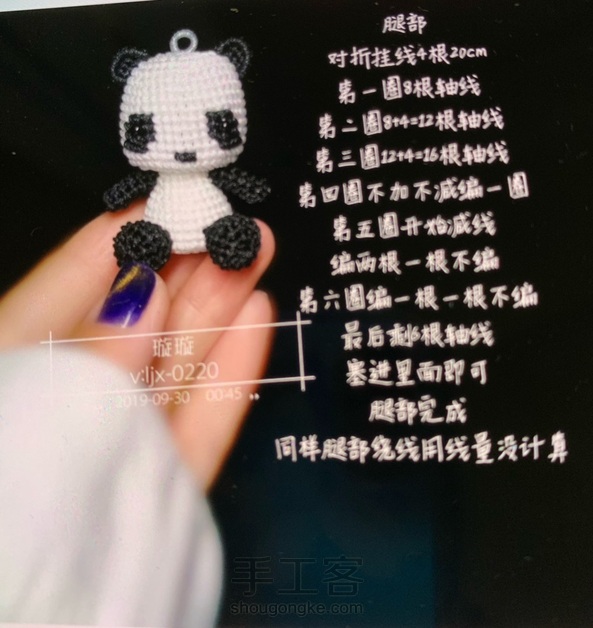 腿部
对折挂线4根20cm
第一圈8根轴线
第二圈8+4=12根轴线
第三圈12+4=16根轴线
第四圈不加不减编一圈
第五圈开始减线
编两根一根不编
第六圈编一根一根不编
最后剩6根轴线
塞进里面即可
腿部完成
同样腿部绕线用线量没计算
璇璇
v:ljx-0220
2019-09-30 00:45
手工客
shougongke.com